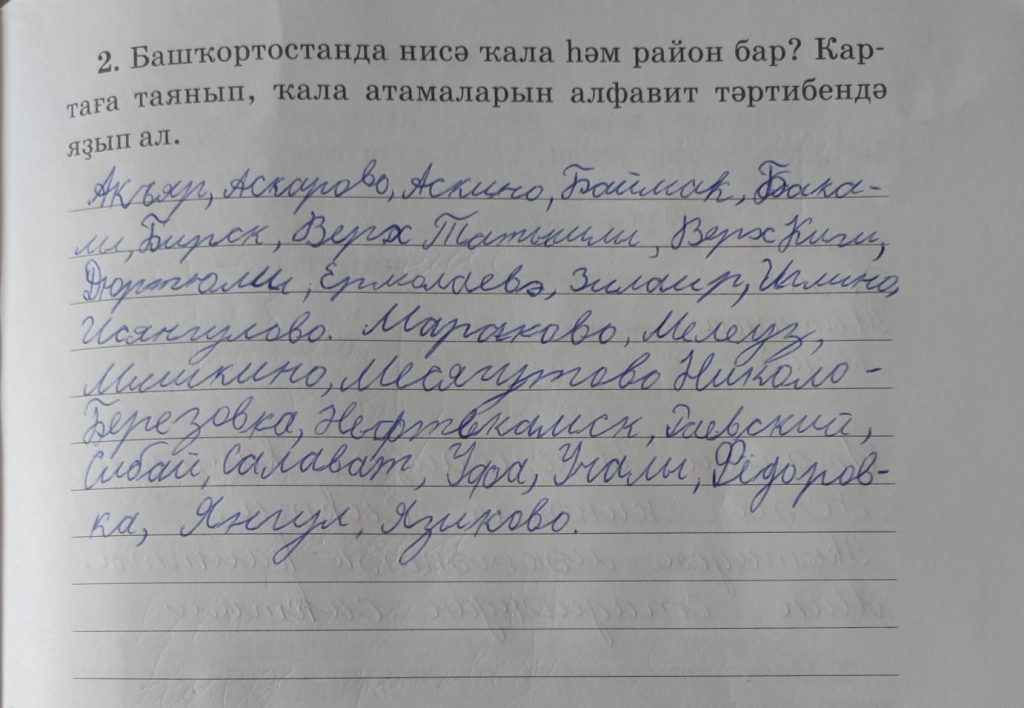 2. Башҡортостанда нисә ҡала һәм район бар? Кар-
таға таянып, ҡала атамаларын алфавит тәртибендә
яҙып ал.
Ақъяр, Аскарово, Аскино, Баймак, Бака-
ли, Бирск, Верх Татышли, Верх Киги,
Дюртюли, Ермолаево, Зилаир, Иглино,
Исянгулово. Мараково, Мелеуз,
Мишкино, Месягутово Николо-
Березовка, Нефтекамск, Раевский,
Сибай, Салават, Уфа, Учалы, Фёдоров-
ка, Янгул, Язиково.